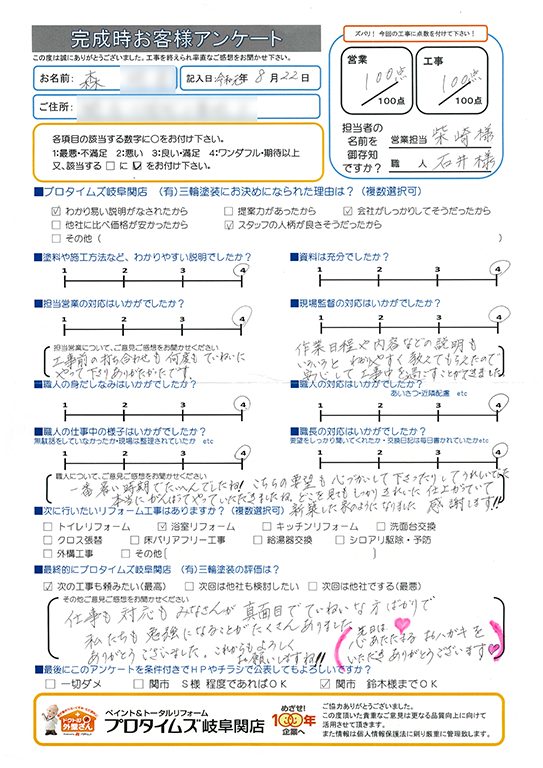 完成時お客様アンケート
この度は誠にありがとうございました。工事を終えられ率直なご感想をお聞かせ下さい。
お名前: 森
記入日 令和元年 8月22日
ご住所:
ズバリ!今回の工事に点数を付けて下さい!
営業 100点/100点
工事 100点/100点
各項目の該当する数字に○をお付け下さい。
1:最悪・不満足 2:悪い 3:良い・満足 4:ワンダフル・期待以上
又、該当する□に☑をお付け下さい。
担当者の名前を御存知ですか?
営業担当 柴崎様
職人 石井様
■プロタイムズ岐阜関店 (有)三輪塗装にお決めになられた理由は?(複数選択可)
☑ わかり易い説明がなされたから □ 提案力があったから ☑ 会社がしっかりしてそうだったから
□ 他社に比べ価格が安かったから ☑ スタッフの人柄が良さそうだったから
□ その他( )
■塗料や施工方法など、わかりやすい説明でしたか? ■資料は充分でしたか?
1 2 3 4 1 2 3 4
■担当営業の対応はいかがでしたか? ■現場監督の対応はいかがでしたか?
1 2 3 4 1 2 3 4
担当営業について、ご意見ご感想をお聞かせください
工事前の打ち合わせも何度もていねいに
やって下さりありがたかたです。
作業日程や内容などの説明も
いろいろと わかりやすく教えてもらえたので
安心して工事中を過ごすことができました
■職人の身だしなみはいかがでしたか? ■職人の対応はいかがでしたか?
あいさつ・近隣配慮 etc
1 2 3 4 1 2 3 4
■職人の仕事中の様子はいかがでしたか? ■職長の対応はいかがでしたか?
無駄話をしていなかったか・現場は整理されていたか etc 要望をしっかり聞いてくれたか・交換日記は毎日書かれていたか etc
1 2 3 4 1 2 3 4
職人について、ご意見ご感想をお聞かせください
一番暑い時期でたいへんでしたね! こちらの要望も心づかいして下さったりしてうれしいでした
本当にがんばってやっていただきましたね。どこを見てもしっかりきれいに仕上がっていて
新築した家のようになりました 感謝します!!
■次に行いたいリフォーム工事はありますか?(複数選択可)
□ トイレリフォーム ☑ 浴室リフォーム □ キッチンリフォーム □ 洗面台交換
□ クロス張替 □ 床バリアフリー工事 □ 給湯器交換 □ シロアリ駆除・予防
□ 外構工事 □ その他( )
■最終的にプロタイムズ岐阜関店 (有)三輪塗装の評価は?
☑ 次の工事も頼みたい(最高) □ 次回は他社も検討したい □ 次回は他社でする(最悪)
その他ご意見ご感想をお聞かせください
仕事も対応もみなさんが真面目でていねいな方ばかりで
私たちも勉強になることがたくさんありました
ありがとうございました。これからもよろしく
お願いしますね!!
先日は♥
心あたたまる おハガキを
いただき ありがとうございます♥
■最後にこのアンケートを条件付きでHPやチラシで公表してもよろしいですか?
□ 一切ダメ □ 関市 S様 程度であればOK ☑ 関市 鈴木様までOK
ドクトル外壁さん
ペイント&トータルリフォーム
プロタイムズ岐阜関店
めざせ!
100年
企業へ
ご協力ありがとうございました。
この度頂いた貴重なご意見は更なる品質向上に向けて
活用させて頂きます。
また情報は個人情報保護法に則り厳重に管理致します。